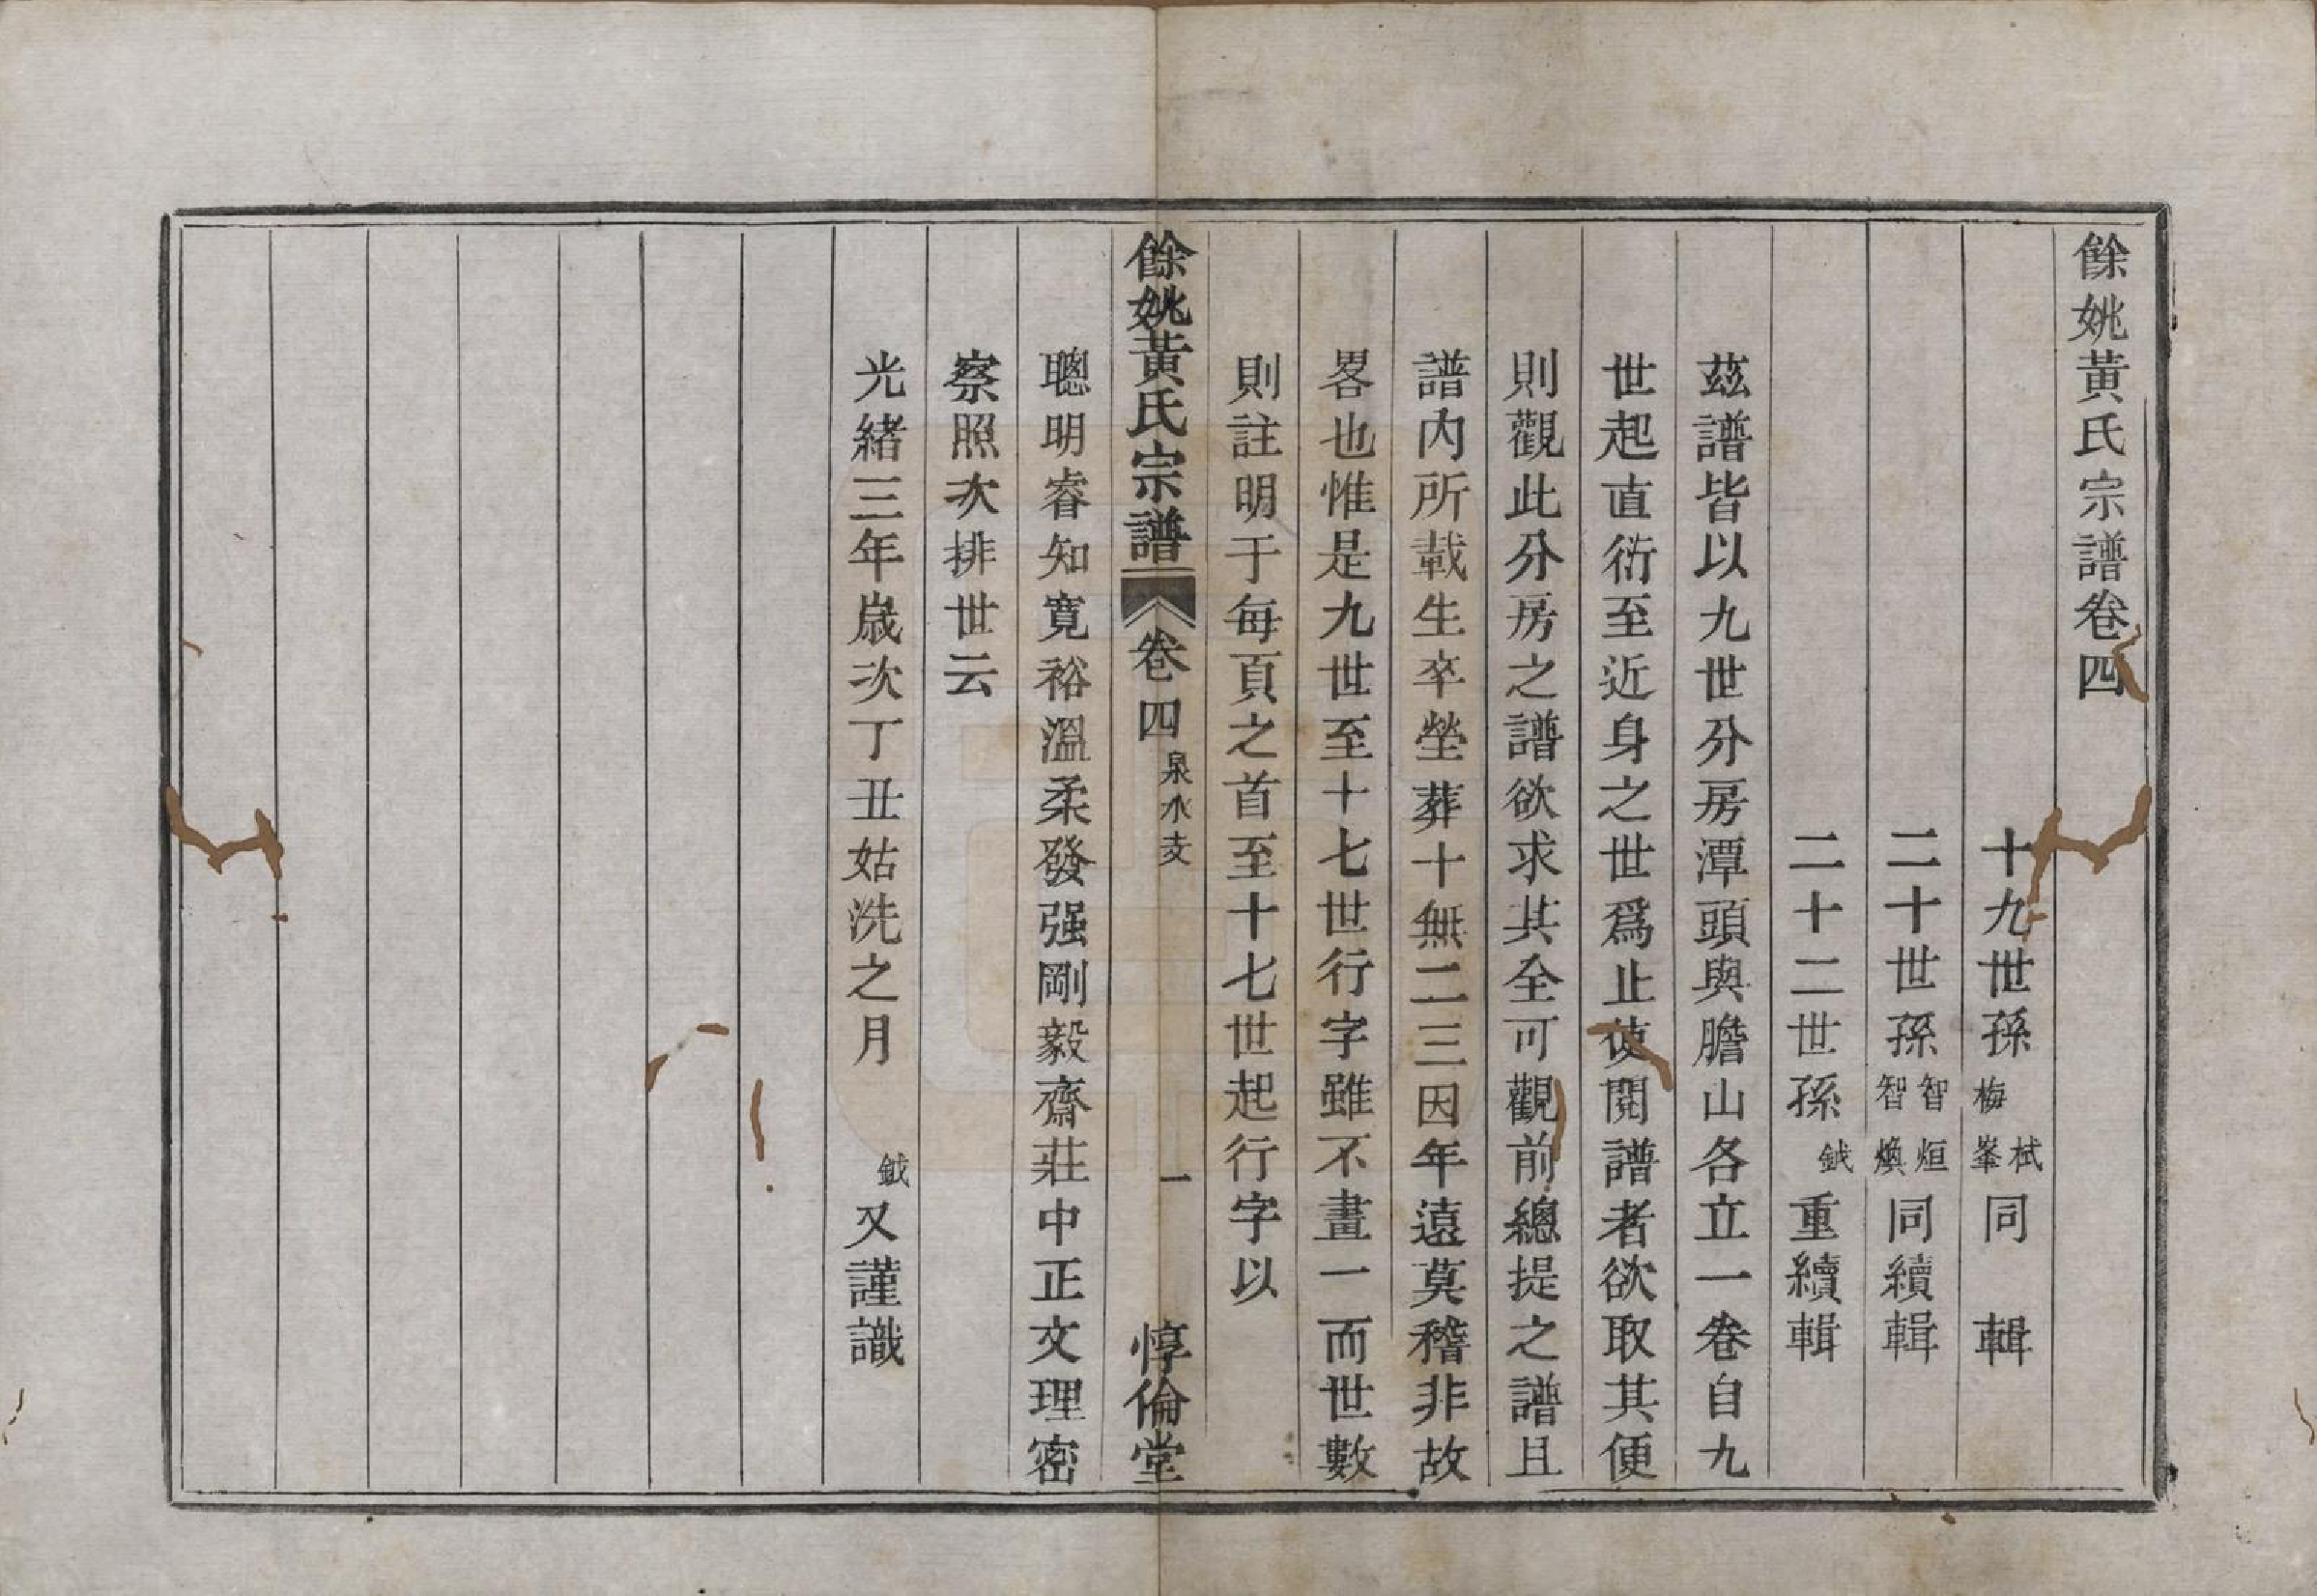 餘姚黃氏宗譜卷四
十九世孫 栻 梅峯 同 輯
二十世孫 智烜 智煥 同續輯
二十二世孫 鉞 重續輯
茲譜皆以九世分房潭頭與膽山各立一卷自九
世起直衍至近身之世爲止使閱譜者欲取其便
則觀此分房之譜欲求其全可觀前總提之譜且
譜内所載生卒塋葬十無二三因年遠莫稽非故
畧也惟是九世至十七世行字雖不畫一而世數
則註明于每頁之首至十七世起行字以
餘姚黃氏宗譜 卷四 泉水支 一 惇倫堂
聰明睿知寛裕溫柔發强剛毅齋莊中正文理密
察照次排世云
光緒三年歲次丁丑姑洗之月 鉞又謹識